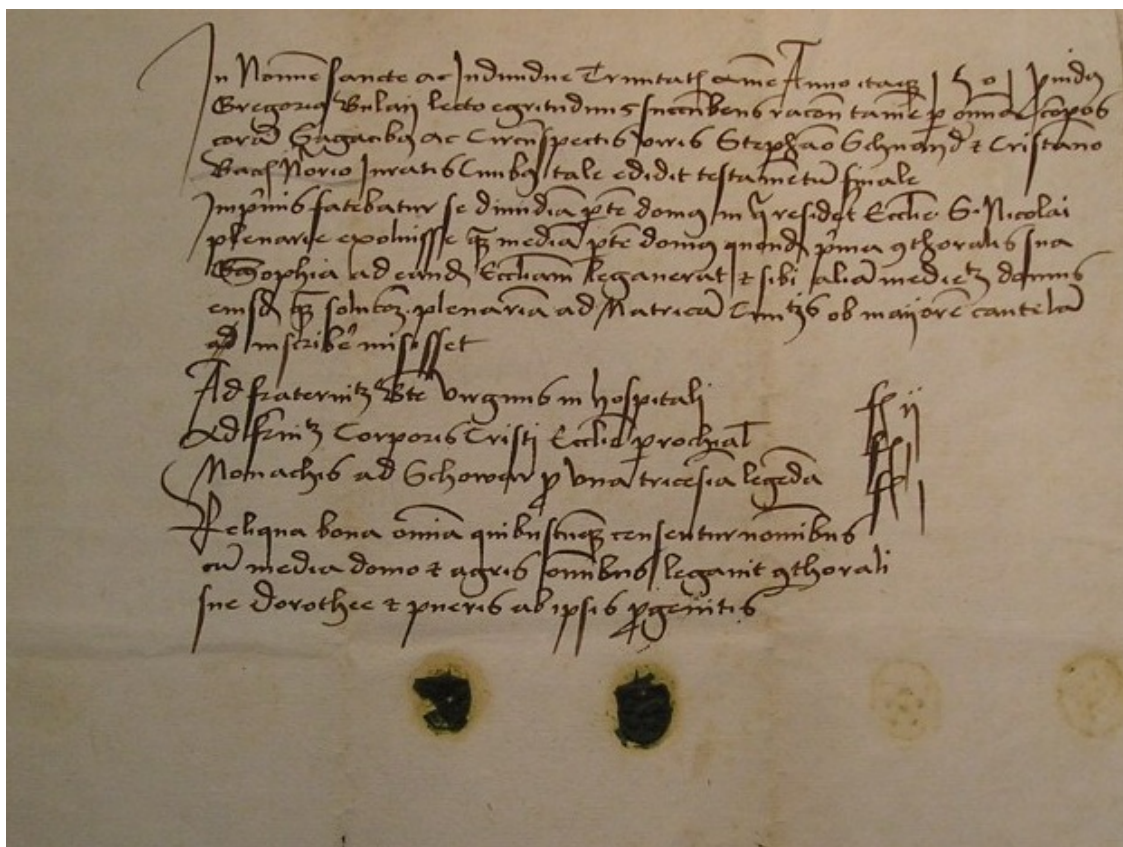 In Nomine sancte ac Indiuidue Trinitatis amen Anno itaque 1501 prouidus
Gregorius lecto egritudinis succumbens racon tamen per omnia compos
coram Sagacibus ac Circumspectis viris Stephano et Cristano
Iuratis Ciuibus tale edidit testamentum finale
Imprimis fatebatur se dimidiam partem domus in qua residet Ecclesie S. Nicolai
plenarie exoluisse quam mediam partem domus quondam prima 9thoralis sua
Sophia ad eandem Ecclesiam legauerat et sibi aliam medietatem domus
eiusdem solutionem plenariam ad Matricam Ciuitatis ob maiorem cautelam
inscribere misisset
Ad fraternitatem Beate Virginis in hospitali ff ij
Ad fraternitatem Corporis Cristi Ecclesie parochialis ff j
Monachis ad pro vna tricesima legenda ff j
Reliqua bona omnia quibuscumque censentur nominibus
cum media domo et agris omnibus legauit 9thorali
sue Dorothee et pueris ab ipsis progenitis